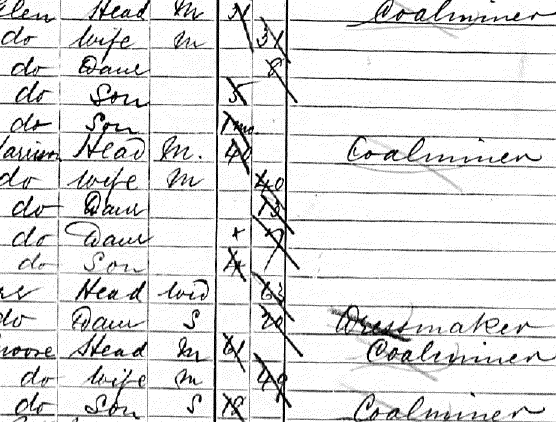 Head M Coalminer
do Wife M 31
do Daur 8
do Son 5
do Son 1 mo
Head M. 40 Coalminer
do Wife M 40
do Daur 13
do Daur
do Son
Head Wid 63
do Daur S 20 Dressmaker
Head M Coalminer
do Wife M 49
do Son S 18 Coalminer